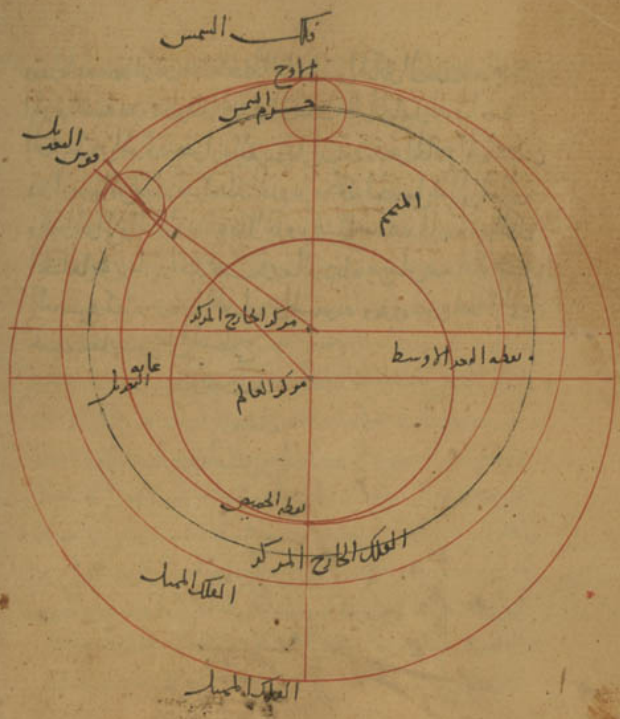 فلك الشمس
الاوج
جرم الشمس
قوس التعديل
المتمم
مركز الخارج المركز
نقطة البعد الاوسط
غاية التعديل
مركز العالم
نقطة الحضيض
الفلك الخارج المركز
الفلك الممثل
الفلك الممثل